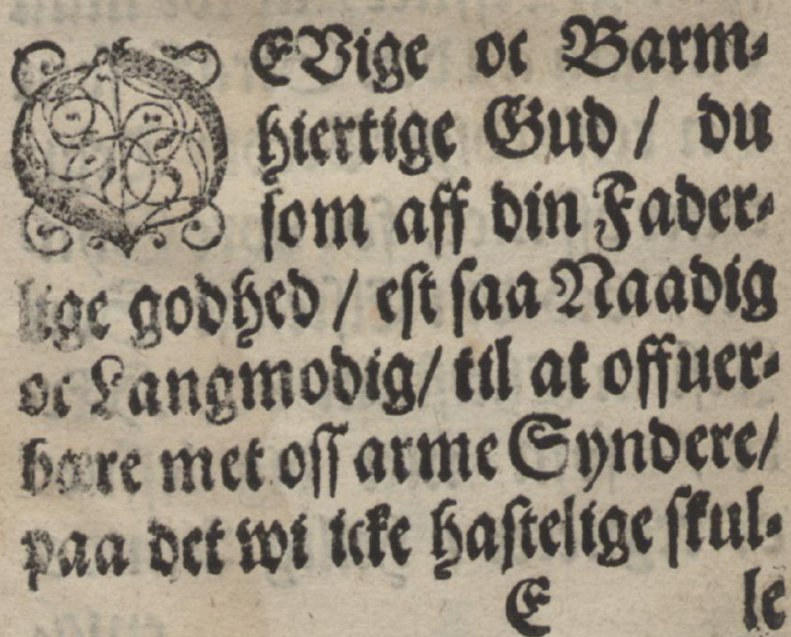 O EVige oc Barm-
hiertige Gud / du
som aff din Fader-
lige godhed / est saa Naadig
oc Langmodig / til at offuer-
bære met oss arme Syndere /
paa det wi icke hastelige skul-
E le